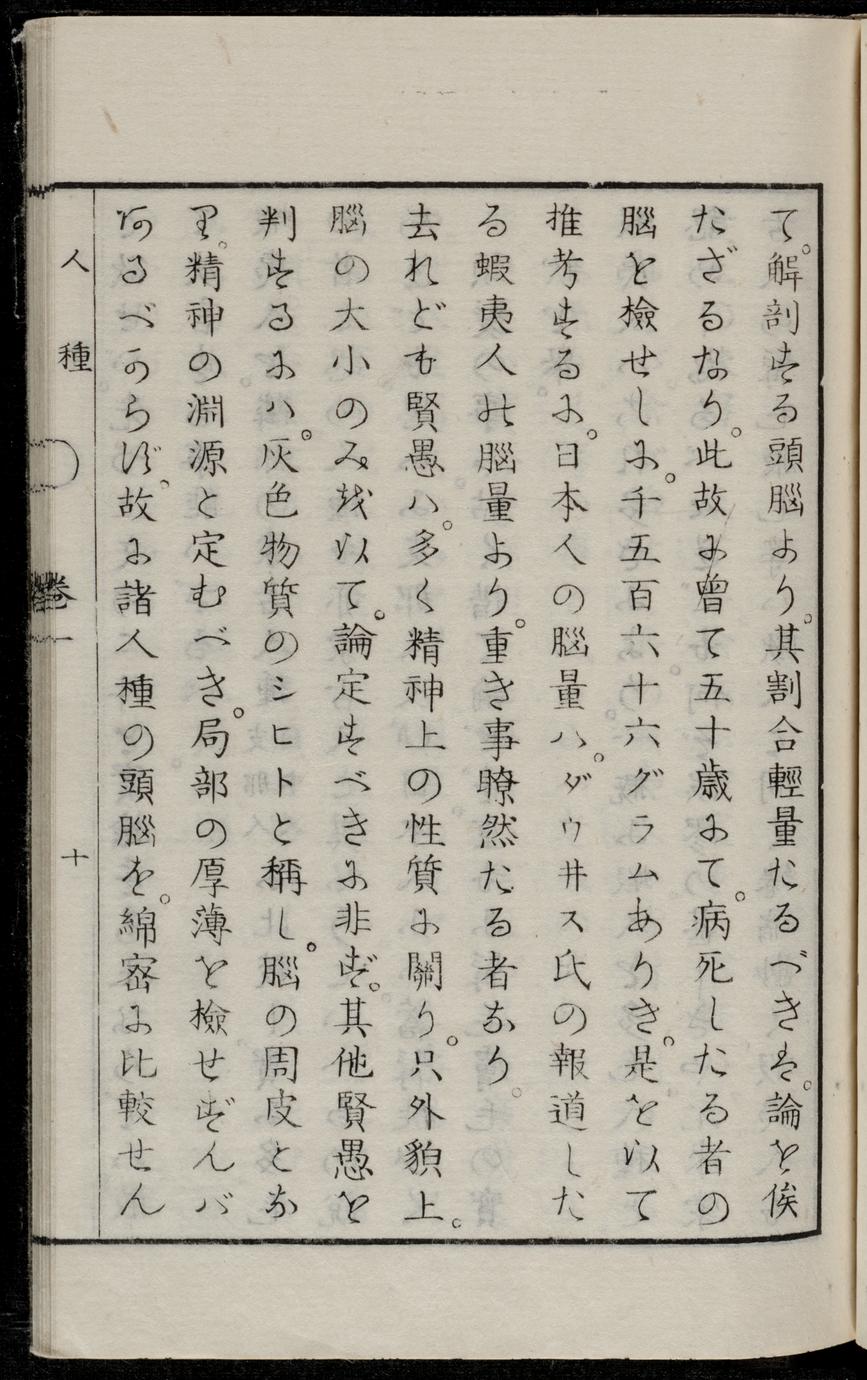 て。解剖する頭腦より。其割合輕量たるべきは。論を俟
たざるなり。此故に曾て五十歳にて。病死したる者の
腦を檢せしに。千五百六十六グラムありき。是を以て
推考するに。日本人の腦量ハ。ダウ井ス氏の報道した
る蝦夷人の腦量より。重き事瞭然たる者なり。
去れども賢愚ハ。多く精神上の性質に關り。只外貌上。
腦の大小のみを以て。論定すべきに非ず。其他賢愚を
判するにハ。灰色物質のシヒトと稱し。腦の周皮とな
り。精神の淵源と定むべき。局部の厚薄を檢せずんバ
あるべからず。故に諸人種の頭腦を。綿密に比較せん
人種
卷一
十